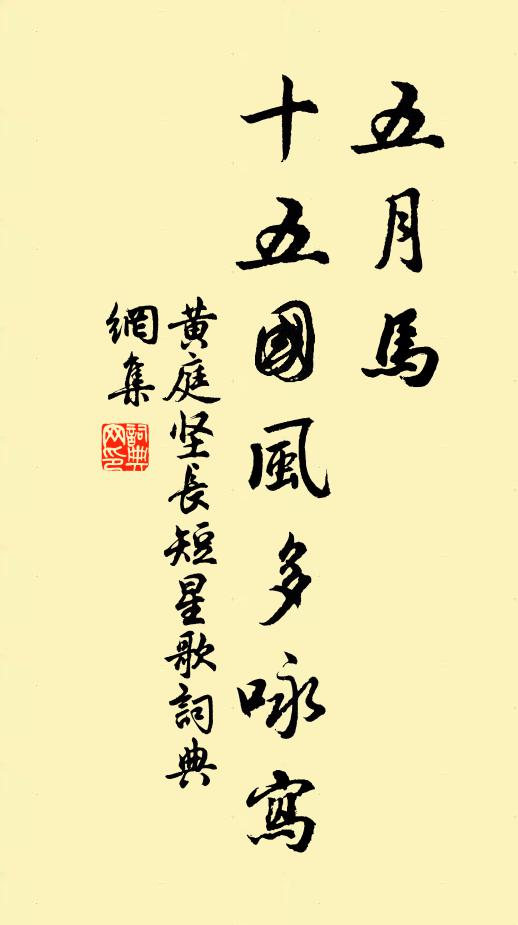 五月馬
十五國風多咏寫
黃庭坚長短星歌詞典
網集
詞典網印